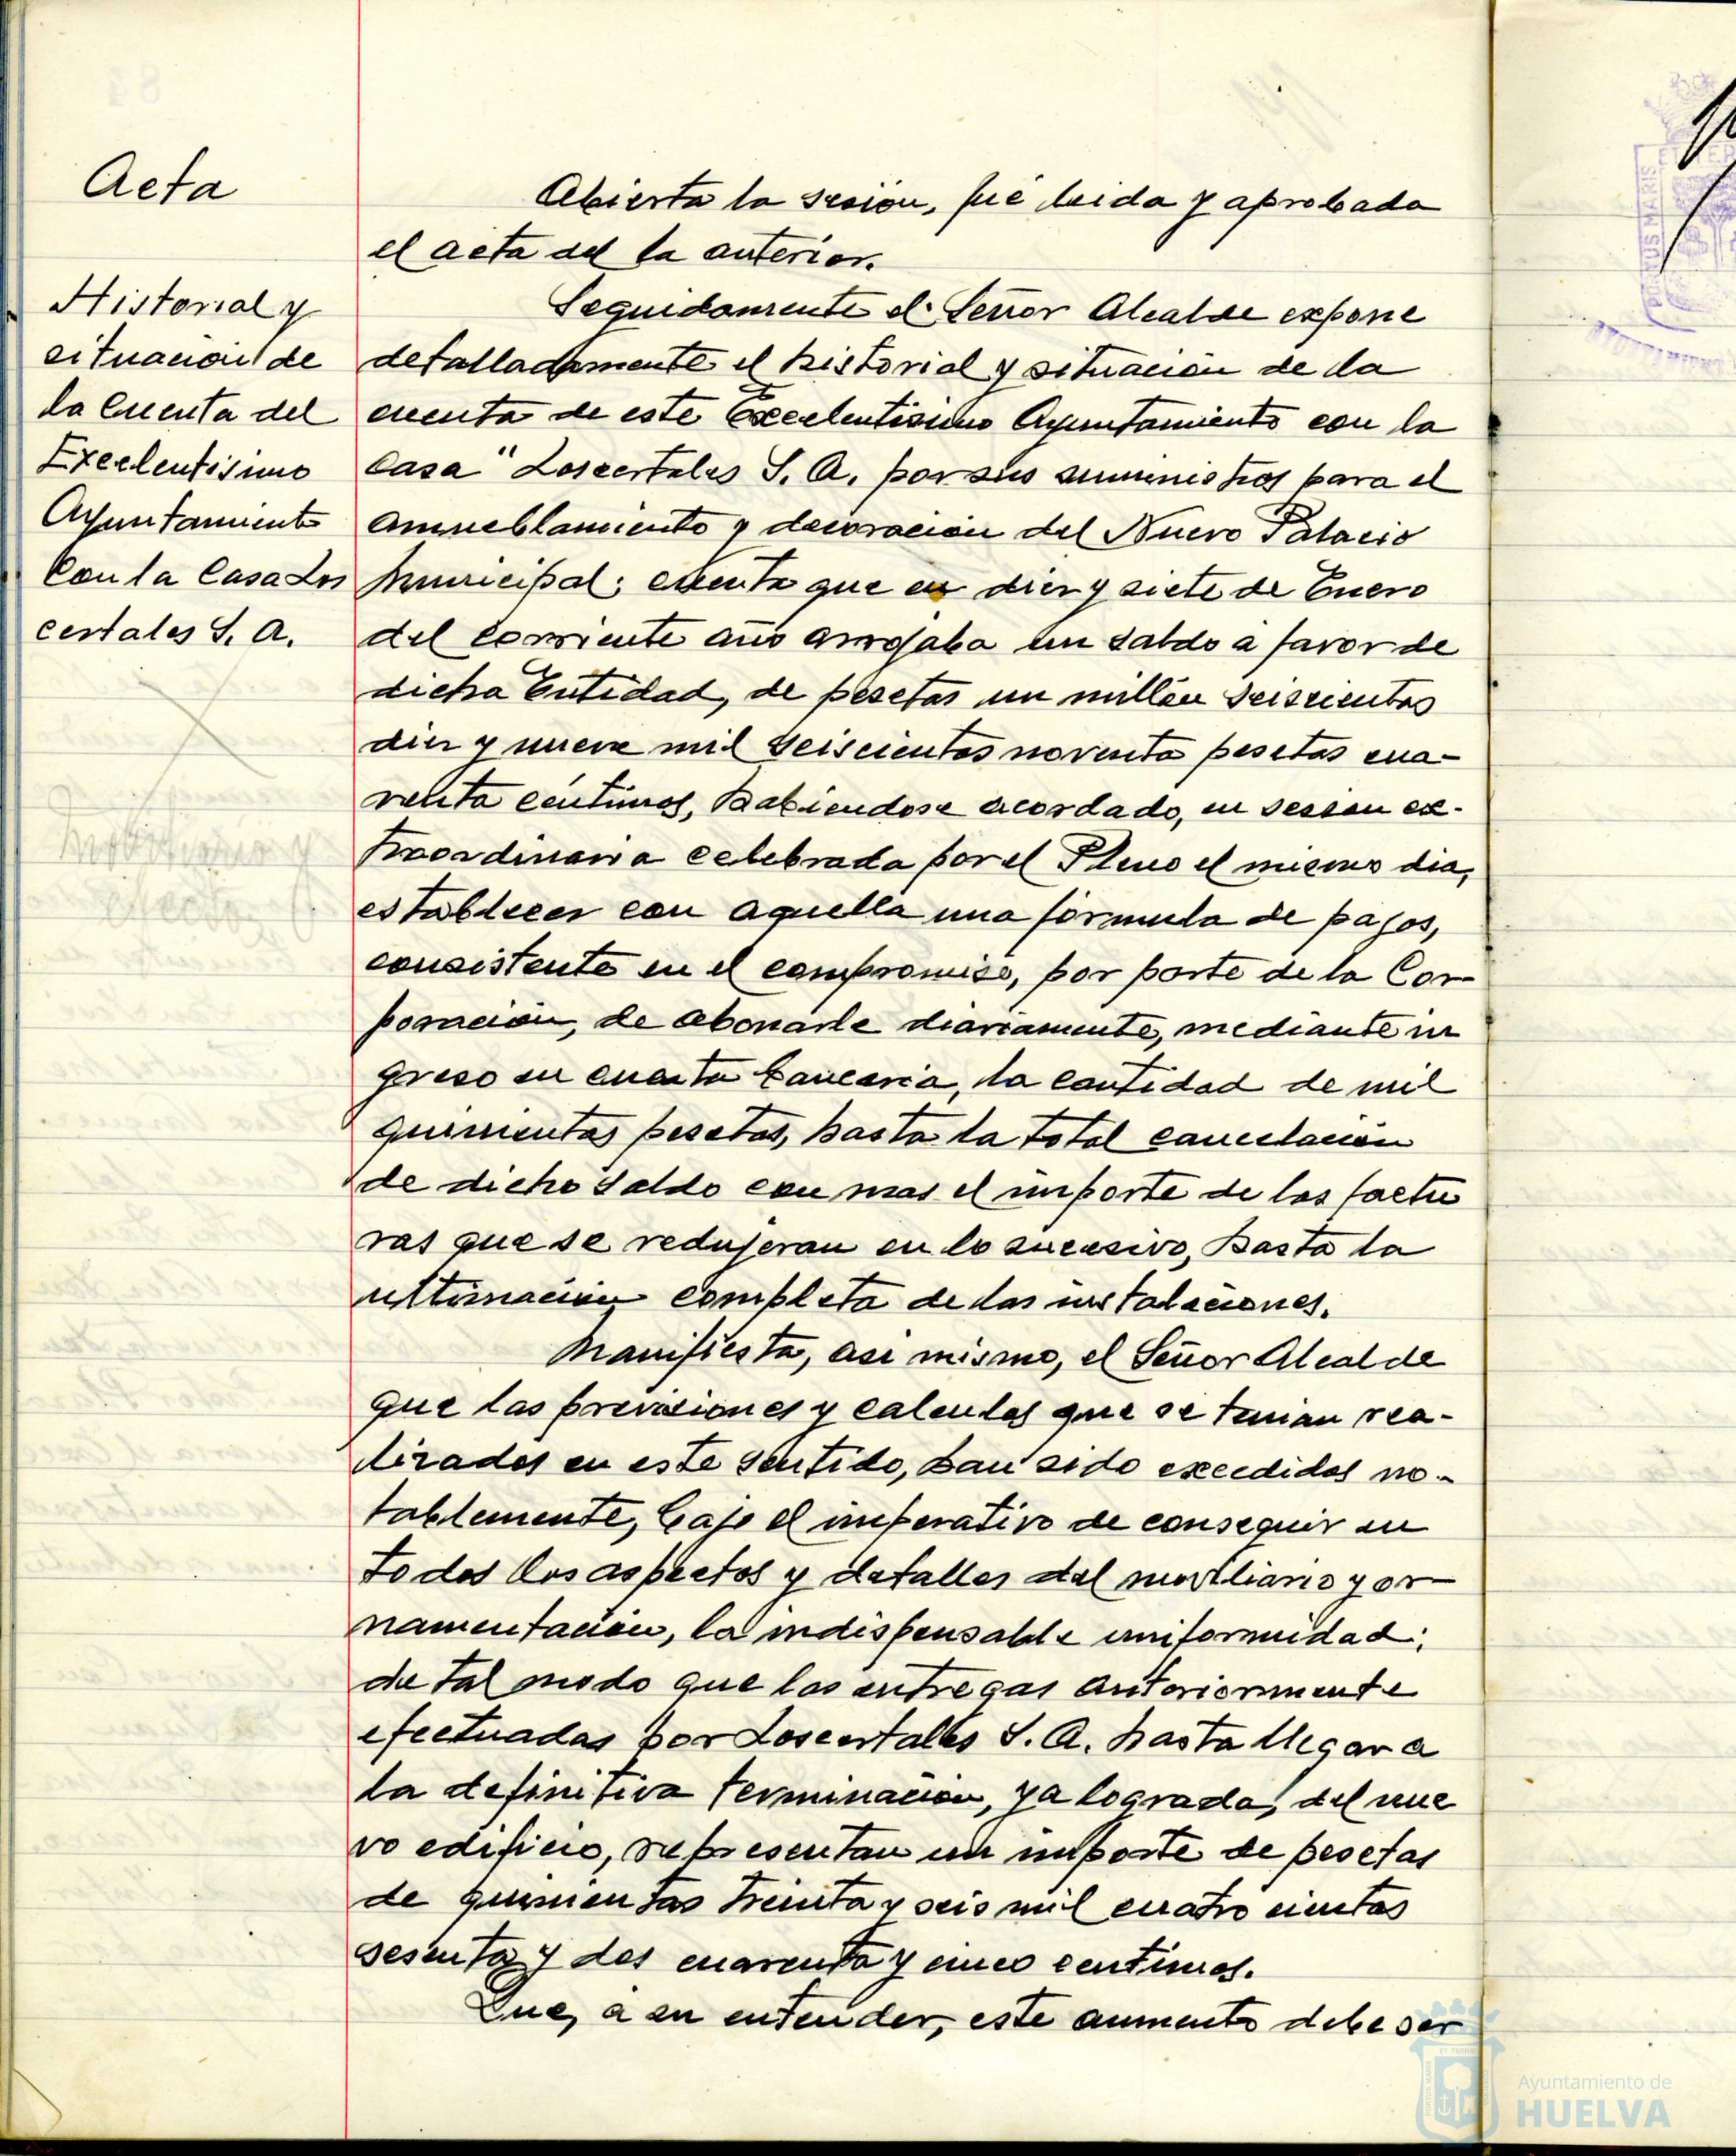 Acta
Abierta la sesión, fué leida y aprobada
el acta del la anterior.
Historial y
situación de
la Cuenta del
Excelentisimo
Ayuntamiento
Con la Casa Los
certales S. A.
Seguidamente el Señor Alcalde expone
detalladamente el historial y situación de la
cuenta de este Excelentisimo Ayuntamiento con la
Casa " Loscertales S. A. por sus suministros para el
amueblamiento y decoración del Nuevo Palacio
Municipal; cuenta que en diez y siete de Enero
del corriente año arrojaba un saldo a favor de
dicha Entidad, de pesetas un millón seiscientas
diez y nueve mil seiscientas noventa pesetas cua-
renta centimos, Habiendose acordado, en sesion ex-
traordinaria celebrada por el Pleno el mismo dia,
establecer con aquella una fórmula de pagos,
consistente en el compromiso, por parte de la Cor-
poración, de abonarle diariamente, mediante in
greso en cuenta bancaria, la cantidad de mil
quinientas pesetas, hasta la total cancelación
de dicho saldo con mas el importe de las factu
ras que se redujeran en lo sucesivo, hasta la
ultimación completa de las instalaciones.
Manifiesta, asi mismo, el Señor Alcalde
que las previsiones y calculos que se tenian rea-
lizados en este sentido, han sido excedidos no-
tablemente, bajo el imperativo de conseguir en
todos los aspectos y detalles del moviliario y or-
namentación, la indispensable uniformidad;
de tal modo que las entregas anteriormente
efectuadas por Loscertales S. A. hasta llegar a
la definitiva terminación, ya lograda, del nue
vo edificio, representan un importe de pesetas
de quinientas treinta y seis mil cuatro cientas
sesenta y dos cuarenta y cinco centimos.
Que, a su entender, este aumento debe ser
Ayuntamiento de
HUELVA